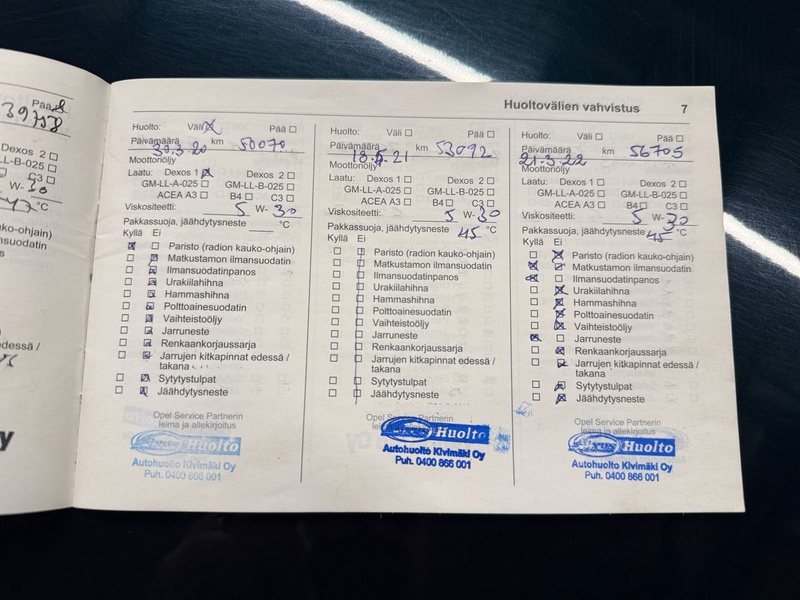 Pää
39758
Dexos 2
LL-B-025
C3
W-30
°C
ko-ohjain)
nsuodatin
s
dessä /
y
Huoltovälien vahvistus 7
Huolto: Väli Pää
Päivämäärä km
30.3.20 50070
Moottoriöljy
Laatu: Dexos 1 Dexos 2
GM-LL-A-025 GM-LL-B-025
ACEA A3 B4 C3
Viskositeetti: 5 W- 30
Pakkassuoja, jäähdytysneste °C
Kyllä Ei
Paristo (radion kauko-ohjain)
Matkustamon ilmansuodatin
Ilmansuodatinpanos
Urakiilahihna
Hammashihna
Polttoainesuodatin
Vaihteistoöljy
Jarruneste
Renkaankorjaussarja
Jarrujen kitkapinnat edessä /
takana
Sytytystulpat
Jäähdytysneste
Opel Service Partnerin
leima ja allekirjoitus
Huolto
Autohuolto Kivimäki Oy
Puh. 0400 866 001
Huolto: Väli Pää
Päivämäärä km 53092
18.5.21
Moottoriöljy
Laatu: Dexos 1 Dexos 2
GM-LL-A-025 GM-LL-B-025
ACEA A3 B4 C3
Viskositeetti: 5 W- 30
Pakkassuoja, jäähdytysneste 45 °C
Kyllä Ei
Paristo (radion kauko-ohjain)
Matkustamon ilmansuodatin
Ilmansuodatinpanos
Urakiilahihna
Hammashihna
Polttoainesuodatin
Vaihteistoöljy
Jarruneste
Renkaankorjaussarja
Jarrujen kitkapinnat edessä /
takana
Sytytystulpat
Jäähdytysneste
Opel Service Partnerin
Huolto
Autohuolto Kivimäki Oy
Puh. 0400 866 001
Huolto: Väli Pää
Päivämäärä km 56705
21.3.22
Moottoriöljy
Laatu: Dexos 1 Dexos 2
GM-LL-A-025 GM-LL-B-025
ACEA A3 B4 C3
Viskositeetti: 5 W- 30
Pakkassuoja, jäähdytysneste 45 °C
Kyllä Ei
Paristo (radion kauko-ohjain)
Matkustamon ilmansuodatin
Ilmansuodatinpanos
Urakiilahihna
Hammashihna
Polttoainesuodatin
Vaihteistoöljy
Jarruneste
Renkaankorjaussarja
Jarrujen kitkapinnat edessä /
takana
Sytytystulpat
Jäähdytysneste
Opel Service Partnerin
leima ja allekirjoitus
Huolto
Autohuolto Kivimäki Oy
Puh. 0400 866 001